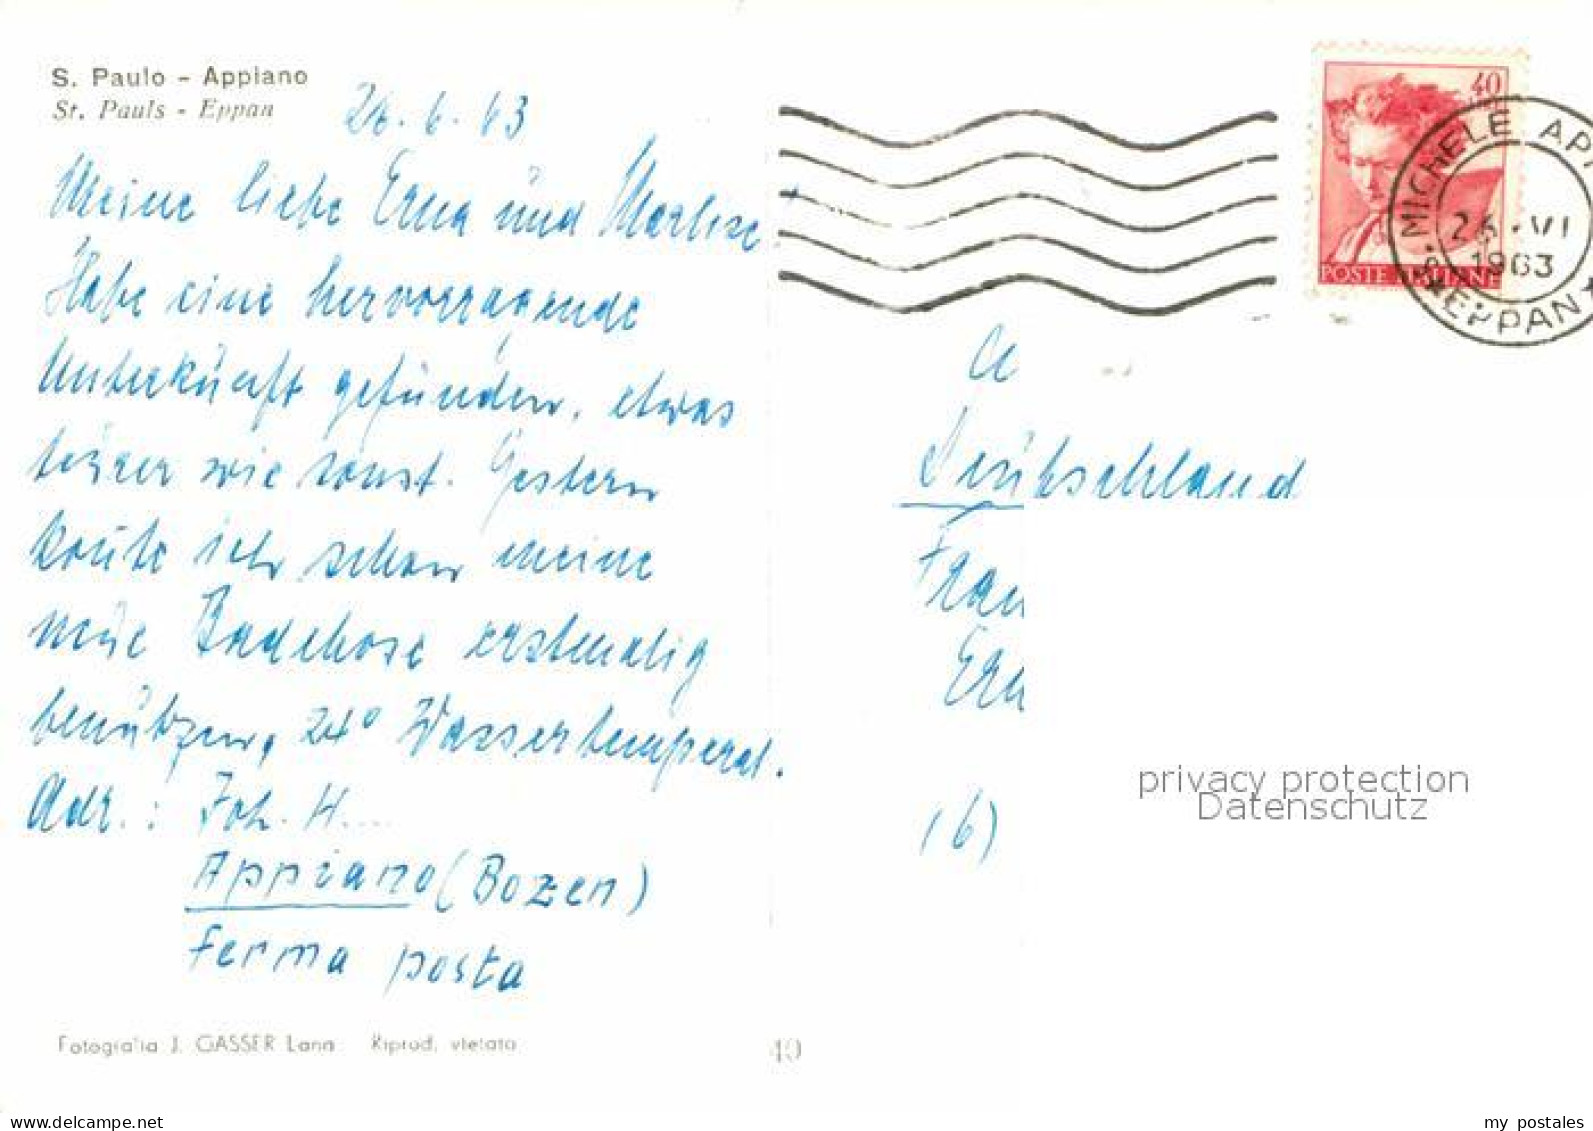 S. Paulo - Appiano
St. Pauls - Eppan
26.6.63
Meine liebe Erna und Marlise.
Habe eine hervorragende
Unterkunft gefunden, etwas
teurer wie sonst. Gestern
konnte ich schon meine
neue Badehose erstmalig
benützen, 24° Wassertemperat.
Adr.: Joh. H....
Appiano (Bozen)
Ferma posta
Fotografia J. GASSER Lana Riprod. vietata
40
40
POSTE ITALIANE
S. MICHELE AP
VI
1963
EPPAN
Deutschland
Frau
(6)
privacy protection
Datenschutz
delcampe.net
my_postales